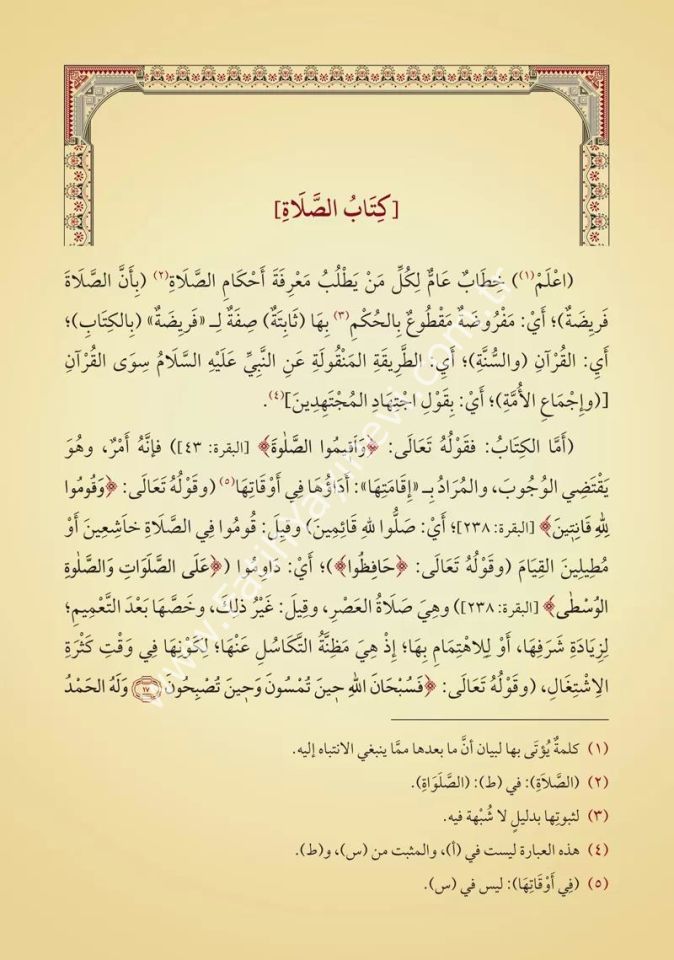 [كِتَابُ الصَّلَاةِ]
(اعْلَمْ(١)) خِطَابٌ عَامٌّ لِكُلِّ مَنْ يَطْلُبُ مَعْرِفَةَ أَحْكَامِ الصَّلَاةِ(٢) (بِأَنَّ الصَّلَاةَ
فَرِيضَةٌ)؛ أَيْ: مَفْرُوضَةٌ مَقْطُوعٌ بِالحُكْمِ(٣) بِهَا (ثَابِتَةٌ) صِفَةٌ لِـ «فَرِيضَةٌ» (بِالكِتَابِ)؛
أَيِ: القُرْآنِ (والسُّنَّةِ)؛ أَيِ: الطَّرِيقَةِ المَنْقُولَةِ عَنِ النَّبِيِّ عَلَيْهِ السَّلَامُ سِوَى القُرْآنِ
[(وإِجْمَاعِ الأُمَّةِ)؛ أَيْ: بِقَوْلِ اجْتِهَادِ المُجْتَهِدِينَ](٤).
(أَمَّا الكِتَابُ: فَقَوْلُهُ تَعَالَى: ﴿وَأَقِيمُوا الصَّلٰوةَ﴾ [البقرة: ٤٣]) فإنَّهُ أَمْرٌ، وهُوَ
يَقْتَضِي الوُجُوبَ، والمُرَادُ بِـ «إِقَامَتِهَا»: أَدَاؤُهَا فِي أَوْقَاتِهَا(٥) (وقَوْلُهُ تَعَالَى: ﴿وَقُومُوا
لِلهِ قَانِتِينَ﴾ [البقرة: ٢٣٨]؛ أَيْ: صَلُّوا لِلهِ قَائِمِينَ) وقِيلَ: قُومُوا فِي الصَّلَاةِ خَاشِعِينَ أَوْ
مُطِيلِينَ القِيَامَ (وقَوْلُهُ تَعَالَى: ﴿حَافِظُوا﴾)؛ أَيْ: دَاوِمُوا (﴿عَلَى الصَّلَوَاتِ وَالصَّلٰوةِ
الوُسْطٰى﴾ [البقرة: ٢٣٨]) وهِيَ صَلَاةُ العَصْرِ، وقِيلَ: غَيْرُ ذٰلِكَ، وخَصَّهَا بَعْدَ التَّعْمِيمِ؛
لِزِيَادَةِ شَرَفِهَا، أَوْ لِلِاهْتِمَامِ بِهَا؛ إِذْ هِيَ مَظِنَّةُ التَّكَاسُلِ عَنْهَا؛ لِكَوْنِهَا فِي وَقْتِ كَثْرَةِ
الِاشْتِغَالِ، (وقَوْلُهُ تَعَالَى: ﴿فَسُبْحَانَ اللهِ حِينَ تُمْسُونَ وَحِينَ تُصْبِحُونَ ﴿١٧﴾ وَلَهُ الحَمْدُ
(١) كلمةٌ يُؤتَى بها لبيان أنَّ ما بعدها ممَّا ينبغي الانتباه إليه.
(٢) (الصَّلَاةِ): في (ط): (الصَّلَوَاةِ).
(٣) لثبوتِها بدليلٍ لا شُبْهة فيه.
(٤) هذه العبارة ليست في (أ)، والمثبت من (س)، و(ط).
(٥) (فِي أَوْقَاتِهَا): ليس في (س).